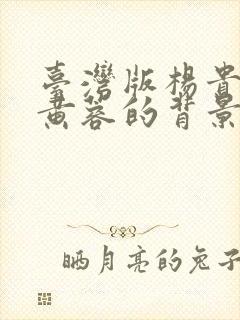 臺灣版楊貴
黃蓉的背景
晒月亮的兔子